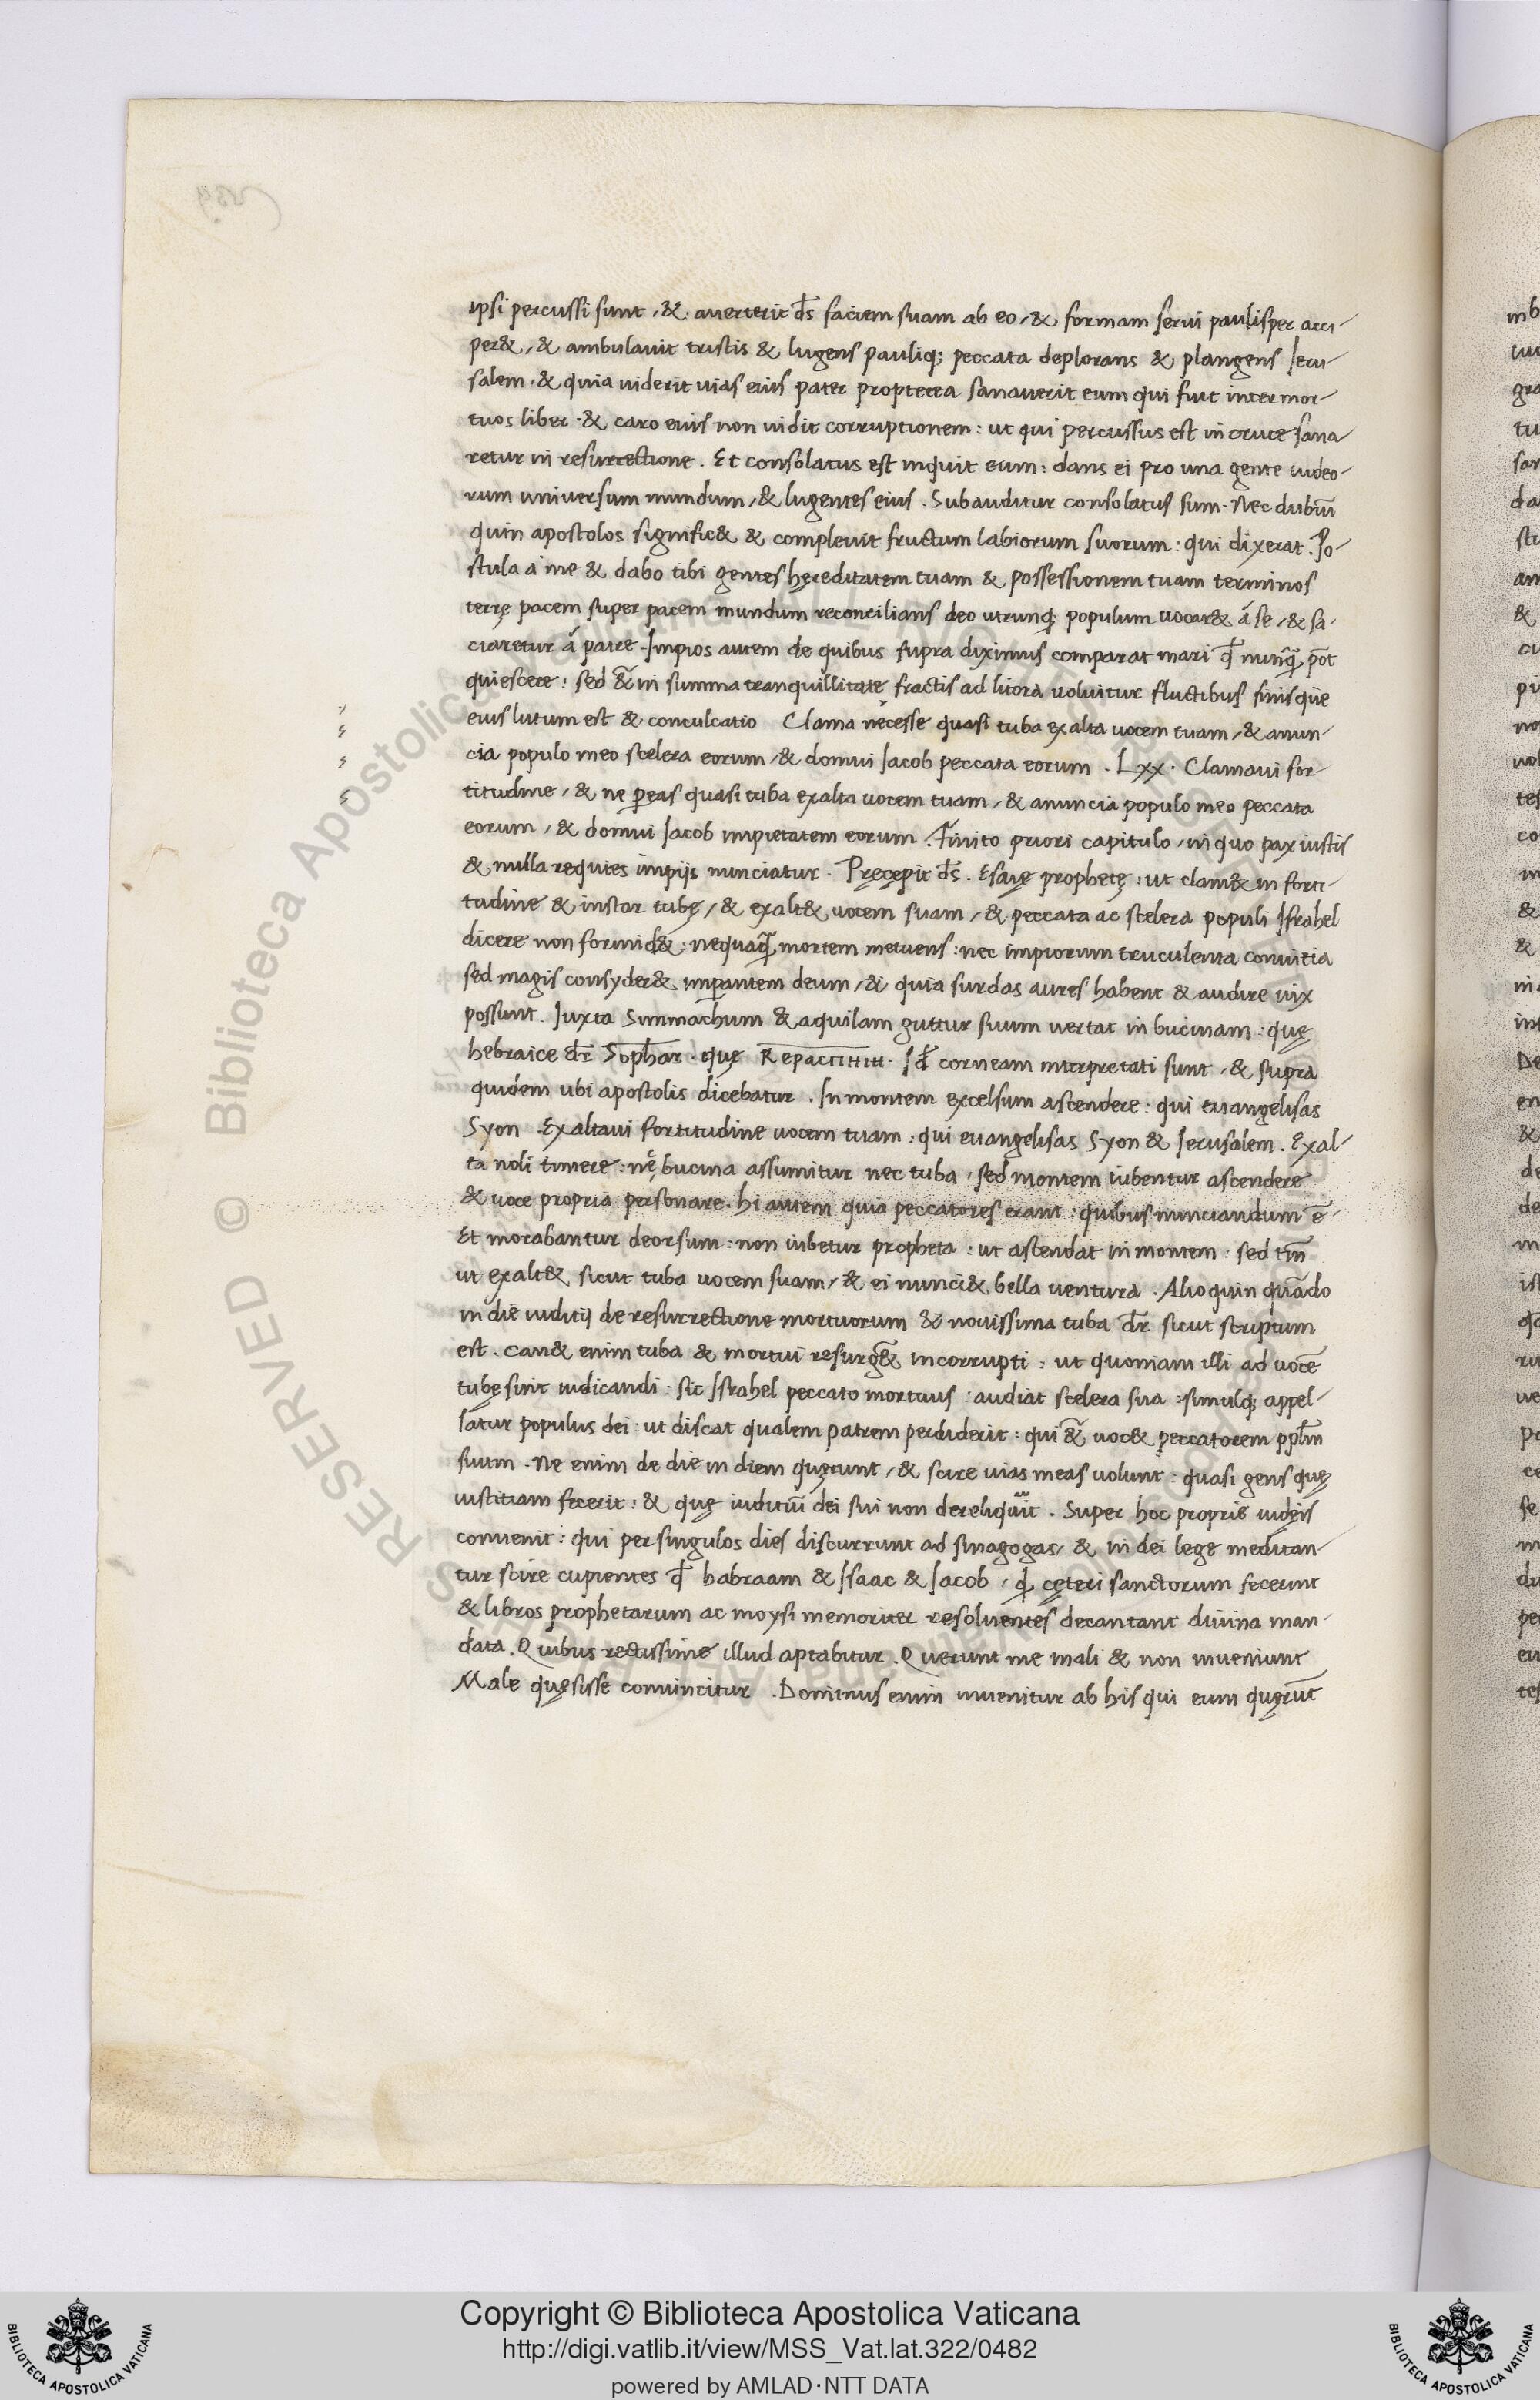 ipsi percussi sunt, &. auerterit d̄s faciem suam ab eo, & formam serui paulisper acci-
per&, & ambulauit tristis & lugens pauliq; peccata deplorans & plangens Ieru-
salem, & quia uiderit uias eius pater propterea sanauerit eum qui fuit inter mor-
tuos liber. & caro eius non uidit corruptionem: ut qui percussus est in cruce sana-
retur in resurrectione. Et consolatus est inquit eum: dans ei pro una gente iudeo-
rum uniuersum mundum, & lugentes eius. Subauditur consolatus sum. Nec dubiū
quin apostolos signific& & compleuit fructum labiorum suorum: qui dixerat. Po-
stula a me & dabo tibi gentes hęreditatem tuam & possessionem tuam terminos
terrę pacem super pacem mundum reconcilians deo utrunq; populum uocar& á se, & sa-
ciaretur á patre. Impios autem de quibus supra diximus comparat mari q̄ nunq̄ pōt
quiescere: sed &̄ in summa tranquillitate fractis ad litora uoluitur fluctibus finisque
eius lutum est & conculcatio Clama necesse quasi tuba exalta uocem tuam, & anun-
cia populo meo scelera eorum, & domui Iacob peccata eorum. Lxx. Clamaui for-
titudine, & ne ꝑeas quasi tuba exalta uocem tuam, & anuncia populo meo peccata
eorum, & domui Iacob impietatem eorum. Finito priori capitulo, in quo pax iustis
& nulla requies impijs nunciatur. Pręcępit d̄s. Esaię prophetę: ut clam& in forti-
tudine & instar tubę, & exalt& uocem suam, & peccata ac scelera populi Israhel
dicere non formid&: nequaq̄ mortem metuens: nec impiorum truculenta conuitia
sed magis consyder& imꝑantem deum, & quia surdas aures habent & audire uix
possunt. Iuxta Simmachum & aquilam guttur suum uertat in bucinam: quę
hebraice dr̄ Sophar. quę
corneam interpretati sunt, & supra
quidem ubi apostolis dicebatur. In montem excelsum ascendere: qui euangelisas
Syon. Exaltaui fortitudine uocem tuam: qui euangelisas Syon & Ierusalem. Exal-
ta noli timere: nę bucina assumitur nec tuba, sed montem iubentur ascendere
& uoce propria personare. hi autem quia peccatores erant: quibus nunciandum ē
Et morabantur deorsum: non iubetur propheta: ut ascendat in montem: sed tm̄
ut exalt& sicut tuba uocem suam, & ei nunci& bella uentura. Alioquin quādo
in die iuditij de resurrectione mortuorum & nouissima tuba dr̄ sicut scriptum
est. can& enim tuba & mortui resurg&̄ incorrupti: ut quoniam illi ad uocē
tubę sint iudicandi: sic Israhel peccato mortuus: audiat scelera sua: simulq; appel-
latur populus dei: ut discat qualem patrem perdiderit: qui &̄ uoc& peccatorem ppl̄m
suum. Ne enim de die in diem quęrunt, & scire uias meas uolunt: quasi gens quę
iustitiam fecerit: & quę iuditiū dei sui non dereliquit. Super hoc proprie iudęis
conuenit: qui per singulos dies discurrunt ad sinagogas, & in dei lege meditan-
tur scire cupientes q̄ habraam & Isaac & Iacob, q̄ cęteri sanctorum fecerint
& libros prophetarum ac moysi memoriter resoluentes decantant diuina man-
data. Quibus rectissime illud aptabitur. Querunt me mali & non inueniunt
Male quęsisse conuincitur. Dominus enim inuenitur ab his qui eum quęrūt
Copyright © Biblioteca Apostolica Vaticana
http://digi.vatlib.it/view/MSS_Vat.lat.322/0482
powered by AMLAD·NTT DATA